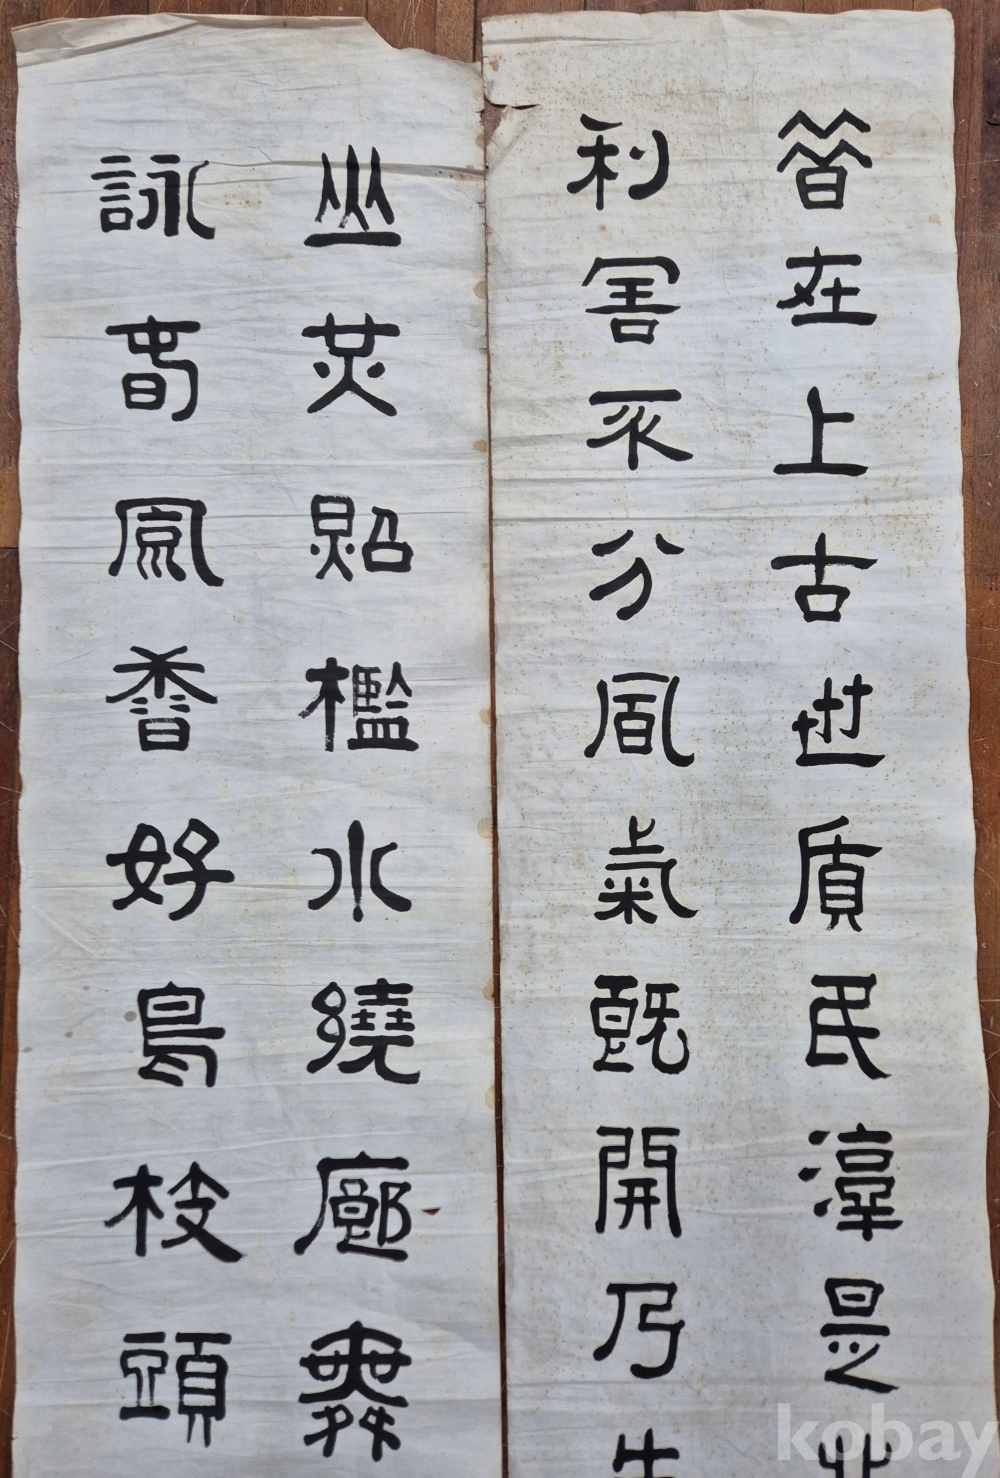 昔在上古世質民淳是
利害不分風氣既開乃生
山光照檻水繞廊舞
詠春風香好鳥枝頭
kobay